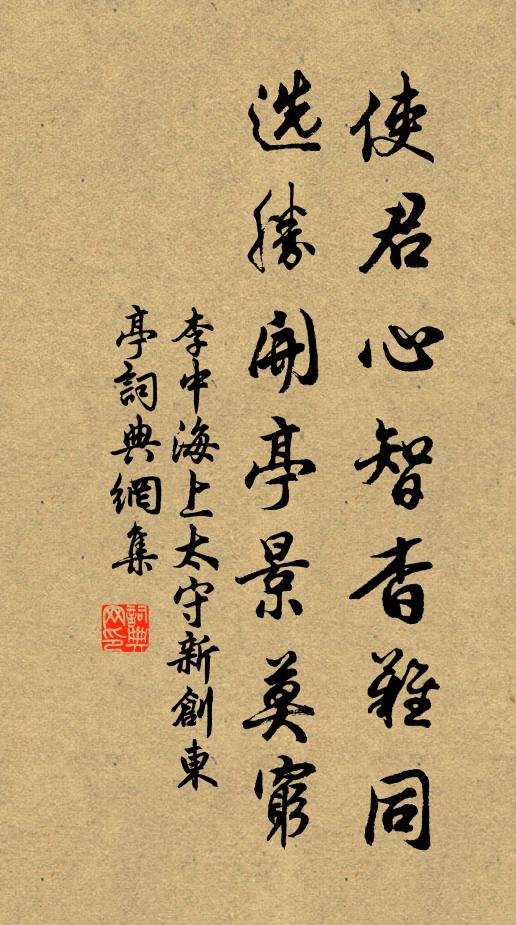 使君心智杳難同
选勝開亭景莫窮
李中海上太守新創東
亭詞典網集
詞典网印